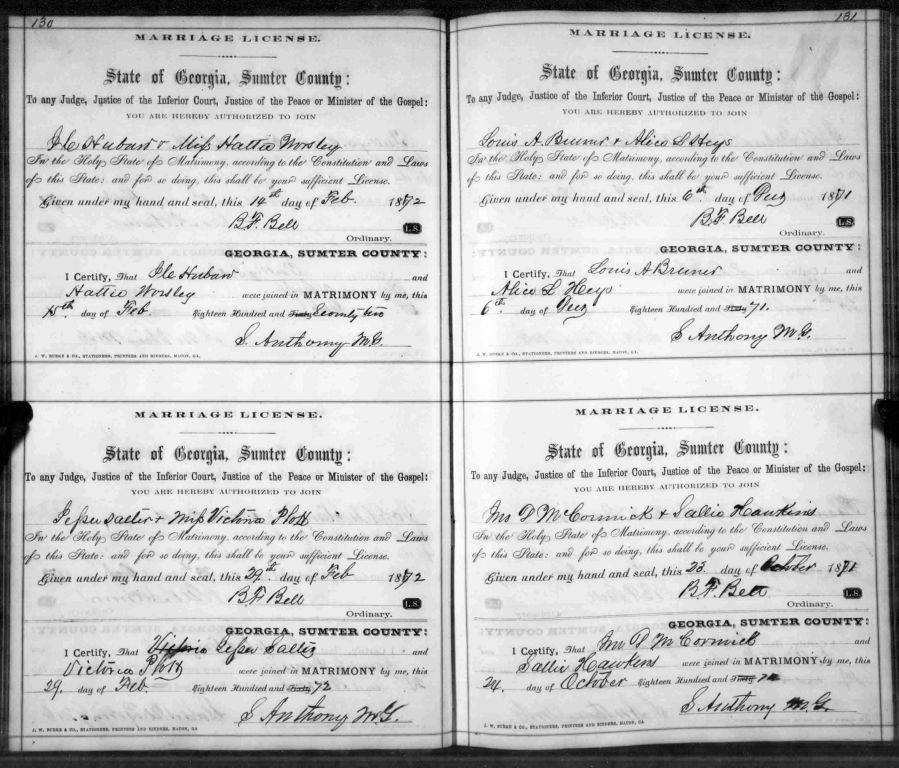 130
MARRIAGE LICENSE.
State of Georgia, Sumter County:
To any Judge, Justice of the Inferior Court, Justice of the Peace or Minister of the Gospel:
YOU ARE HEREBY AUTHORIZED TO JOIN
& Miss Hattie Worsley
In the Holy State of Matrimony, according to the Constitution and Laws
of this State: and for so doing, this shall be your sufficient License.
Given under my hand and seal, this 14th day of Feb 1872
B.F. Bell L.S.
Ordinary.
GEORGIA, SUMTER COUNTY:
I Certify, That and
Hattie Worsley were joined in MATRIMONY by me, this
15th day of Feb Eighteen Hundred and Sixty Seventy two
S. Anthony M.G.
J. W. BURKE & CO., STATIONERS, PRINTERS AND BINDERS, MACON, GA.
MARRIAGE LICENSE.
State of Georgia, Sumter County:
To any Judge, Justice of the Inferior Court, Justice of the Peace or Minister of the Gospel:
YOU ARE HEREBY AUTHORIZED TO JOIN
& Miss Victoria Plott
In the Holy State of Matrimony, according to the Constitution and Laws
of this State: and for so doing, this shall be your sufficient License.
Given under my hand and seal, this 29th day of Feb 1872
B.F. Bell L.S.
Ordinary.
GEORGIA, SUMTER COUNTY:
I Certify, That and
Victoria Plott were joined in MATRIMONY by me, this
29. day of Feb. Eighteen Hundred and Sixty 72
S Anthony M.G.
J. W. BURKE & CO., STATIONERS, PRINTERS AND BINDERS, MACON, GA.
131
MARRIAGE LICENSE.
State of Georgia, Sumter County:
To any Judge, Justice of the Inferior Court, Justice of the Peace or Minister of the Gospel:
YOU ARE HEREBY AUTHORIZED TO JOIN
Louis A Bruner & Alice L Heys
In the Holy State of Matrimony, according to the Constitution and Laws
of this State: and for so doing, this shall be your sufficient License.
Given under my hand and seal, this 6th day of 1871
B.F. Bell L.S.
Ordinary.
GEORGIA, SUMTER COUNTY:
I Certify, That Louis A Bruner and
Alice L Heys were joined in MATRIMONY by me, this
6th day of Eighteen Hundred and Sixty 71.
S Anthony M.G.
J. W. BURKE & CO., STATIONERS, PRINTERS AND BINDERS, MACON, GA.
MARRIAGE LICENSE.
State of Georgia, Sumter County:
To any Judge, Justice of the Inferior Court, Justice of the Peace or Minister of the Gospel:
YOU ARE HEREBY AUTHORIZED TO JOIN
Jno D McCormick & Sallie Hawkins
In the Holy State of Matrimony, according to the Constitution and Laws
of this State: and for so doing, this shall be your sufficient License.
Given under my hand and seal, this 23. day of October 1871
B.F. Bell L.S.
Ordinary.
GEORGIA, SUMTER COUNTY:
I Certify, That Jno D McCormick and
Sallie Hawkins were joined in MATRIMONY by me, this
24. day of October Eighteen Hundred and Sixty
S Anthony M.G.
J. W. BURKE & CO., STATIONERS, PRINTERS AND BINDERS, MACON, GA